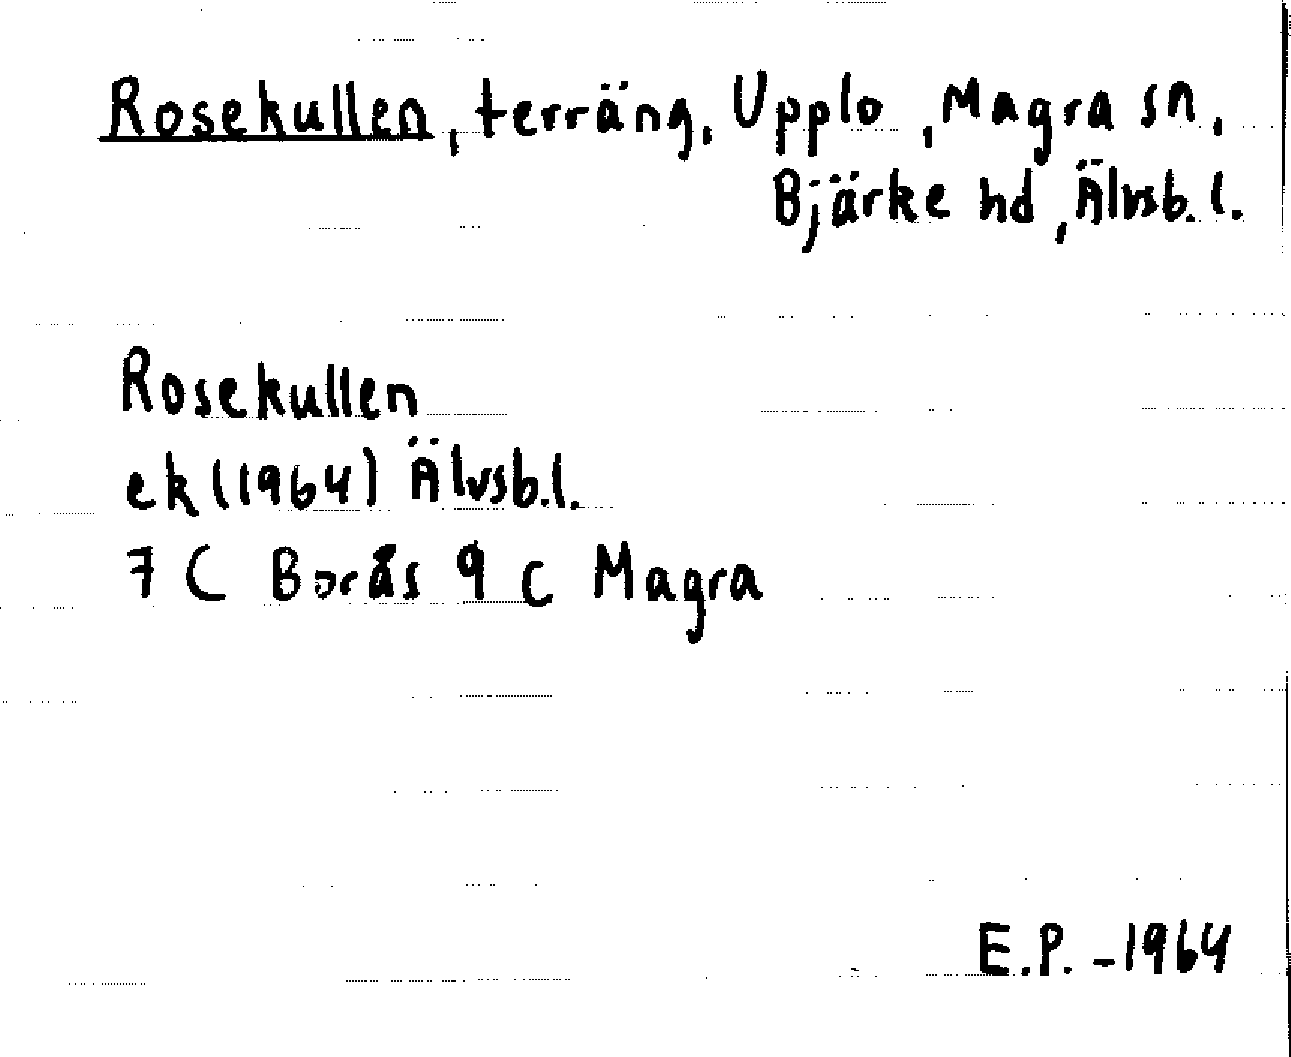 Rosekullen, terräng, Upplo, Magra sn,
Bjärke hd, Älvsb. l.
Rosekullen
ek (1964) Älvsb. l.
7 C Borås 9 c Magra
E.P. - 1964